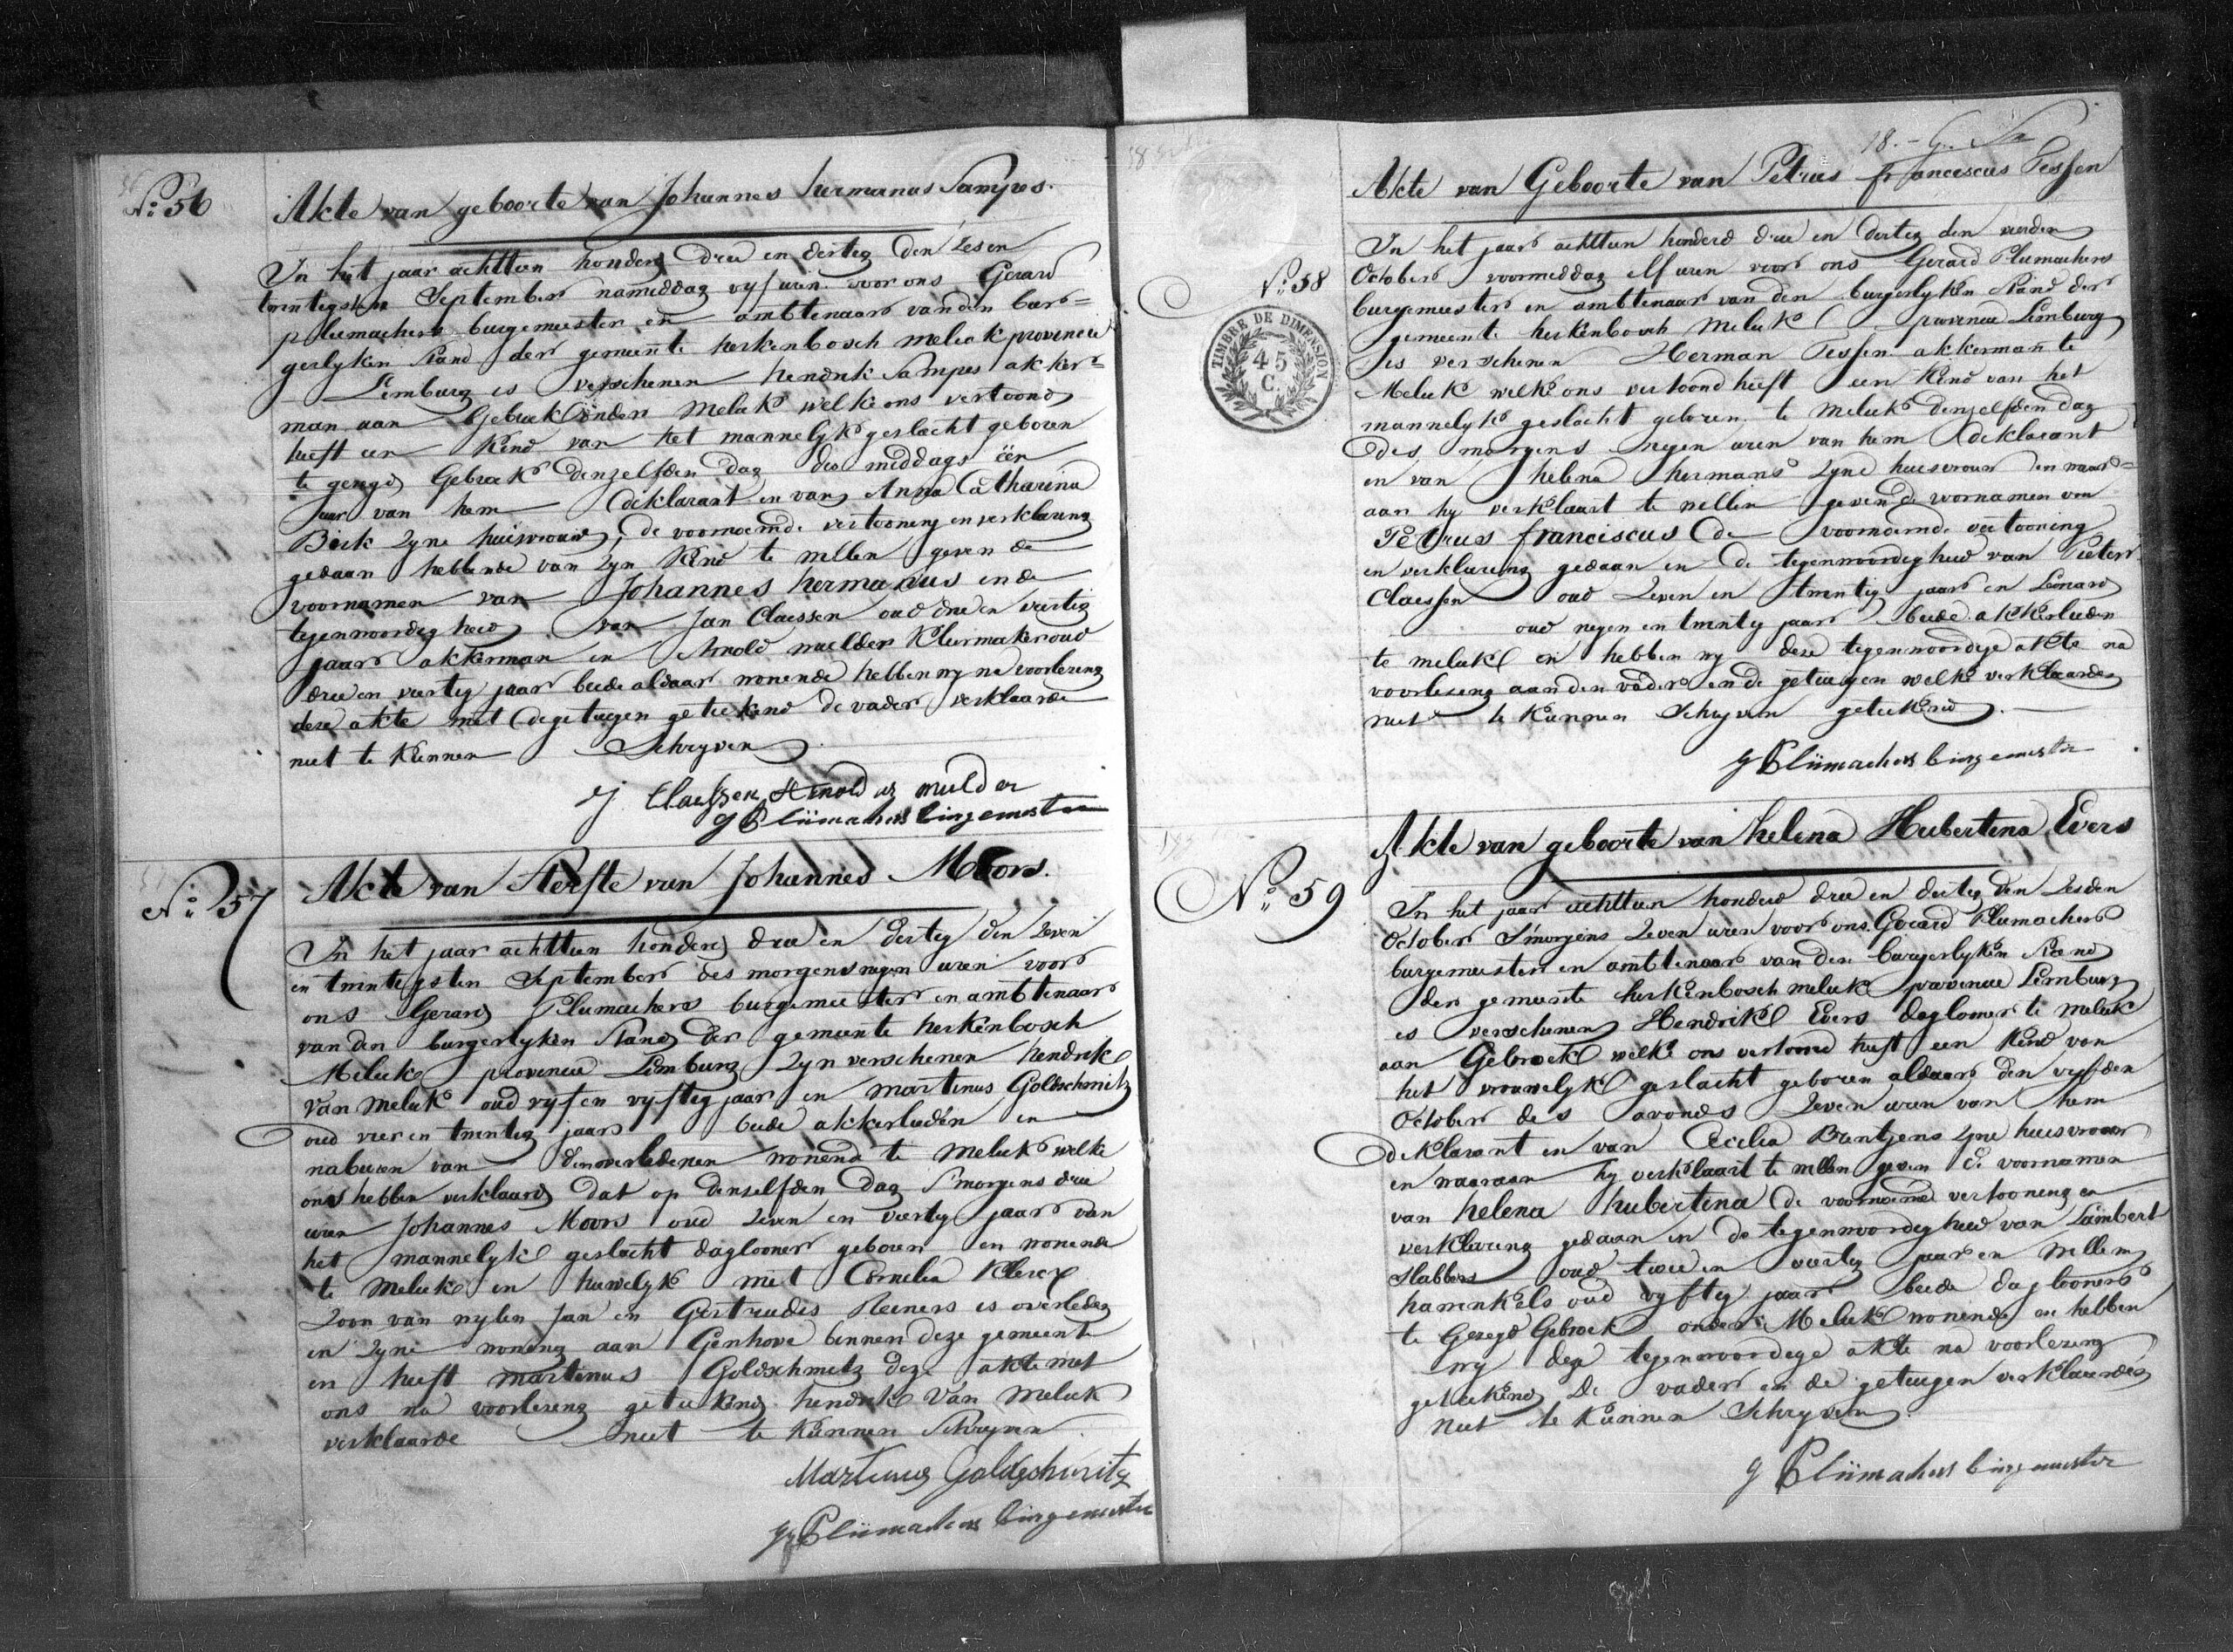 No: 56
Akte van geboorte van Johannes hermanus Sampes.
In het jaar achttien honderd drie en dertig den zesen
twentigsten September namiddag vyf uren voor ons Gerard
plumachers burgemeester en ambtenaar van den bur=
gerlyken stand der gemeente herkenbosch melick provincie
Limburg is verschenen hendrik Sampes akker=
man aan Gebroek onder Melick welke ons vertoond
heeft een Kind van het mannelyk geslacht geboren
te gezegd Gebroek denzelfden dag des middags één
uur van hem deklarant en van Anna Catharina
Beek zyne huisvrouw, de voornoemde vertooning en verklaring
gedaan hebbende van zyn Kind te willen geven de
voornamen van Johannes hermanus in de
tegenwoordigheid van Jan Claessen oud drie en veertig
jaar akkerman en Arnold muelder Kleermaker oud
drie en veertig jaar beide aldaar wonende hebben wy na voorlezing
deze akte met de getuigen geteekend de vader verklaarde
niet te Kunnen Schryven
J Claessen Arnoldus mulder
g Plümachers burgemester
No: 57
Akte van Sterfte van Johannes Moors.
In het jaar achttien honderd drie en dertig den zeven
en twintigsten September des morgens negen uren voor
ons Gerard Plumachers burgemeester en ambtenaar
van den burgerlyken Stand der gemeente herkenbosch
Melick provincie Limburg zyn verschenen hendrik
van melick oud vyf en vyftig jaar en martinus Goldschmitz
oud vier en twintig jaar beide akkerlieden en
naburen van den overledenen wonend te Melick welke
ons hebben verklaard dat op denzelfden dag s'morgens drie
uren Johannes Moors oud zeven en veertig jaar van
het mannelyk geslacht daglooner geboren en wonende
te Melick in huwelyk met Cornelia Klerex
Zoon van wylen Jan en Gertrudis Reiners is overleden
in zyne woning aan Genhove binnen deze gemeente
en heeft martinus Goldschmitz deze akte met
ons na voorlezing geteekend hendrik van melick
verklaarde niet te Kunnen schryven
Martinus Goldschmitz
g Plümachers burgemester
18.-
Akte van Geboorte van Petrus franciscus Tessen
No: 58
TIMBRE DE DIMENSION
45
C.
In het jaar achttien honderd drie en dertig den vierden
October voormiddag elf uren voor ons Gerard Plumachers
burgemeester en ambtenaar van den burgerlyken Stand der
gemeente herkenbosch Melick provincie Limburg
Is verschenen Herman Tessen akkerman te
Melick welke ons vertoond heeft een Kind van het
mannelyk geslacht geboren te melick denzelfden dag
des morgens negen uren van hem deklarant
en van helena hermans zyne huisvrouw en waar=
aan hy verklaart te willen geven de voornamen van
Petrus franciscus de voornoemde vertooning
en verklaring gedaan in de tegenwoordigheid van Pieter
Claessen oud zeven en twintig jaar en Leonard
oud negen en twintig jaar beide akkerlieden
te melick en hebben wy deze tegenwoordige akte na
voorlezing aan den vader en de getuigen welke verklaarden
niet te Kunnen Schryven geteekend.
g Plümachers burgemester
Akte van geboorte van helena Hubertena Evers
No: 59
In het jaar achttien honderd drie en dertig den zesden
October s'morgens zeven uren voor ons Gerard Plumachers
burgemeester en ambtenaar van den burgerlyken Stand
der gemeente herkenbosch melick provincie Limburg
is verschenen Hendrik Evers daglooner te melick
aan Gebroek welke ons vertoond heeft een Kind van
het vrouwelyk geslacht geboren aldaar den vyfden
October des avonds zeven uren van hem
deklarant en van Cecilia Bontjens zyne huisvrouw
en waaraan hy verklaart te willen geven de voornamen
van helena hubertena de voornoemde vertooning en
verklaring gedaan in de tegenwoordigheid van Lambert
Slabbers oud twee en veertig jaar en Willem
hamenkels oud vyftig jaar beide daglooners
te Gezegd Gebroek onder Melick wonende en hebben
wy deze tegenwoordege akte na voorlezing
geteekend de vader en de getuigen verklaarden
niet te Kunnen Schryven.
g Plümachers burgemeester